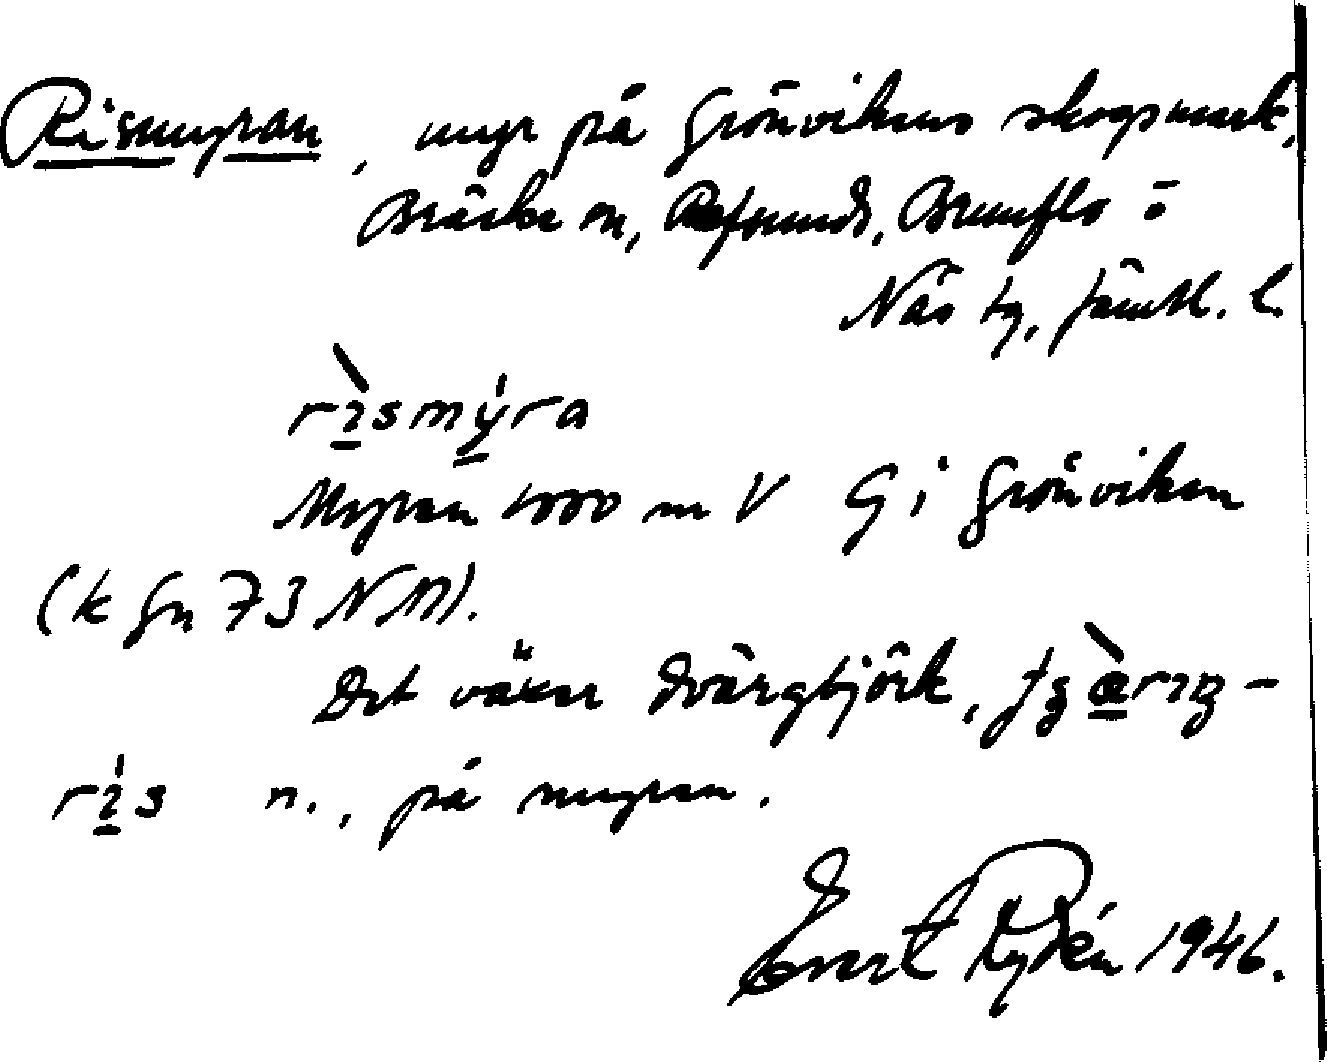 Rismyran, myr på Grönvikens skogsmark,
Bräcke sn, Refsunds, Brunflo o
Näs tg, Jämtl. l.
rìsmýra
Myran 1000 m V G i Grönviken
(k Gn 73 NM).
Det växer dvärgbjörk,
rís n., på myran.
Evert Rydén 1946.